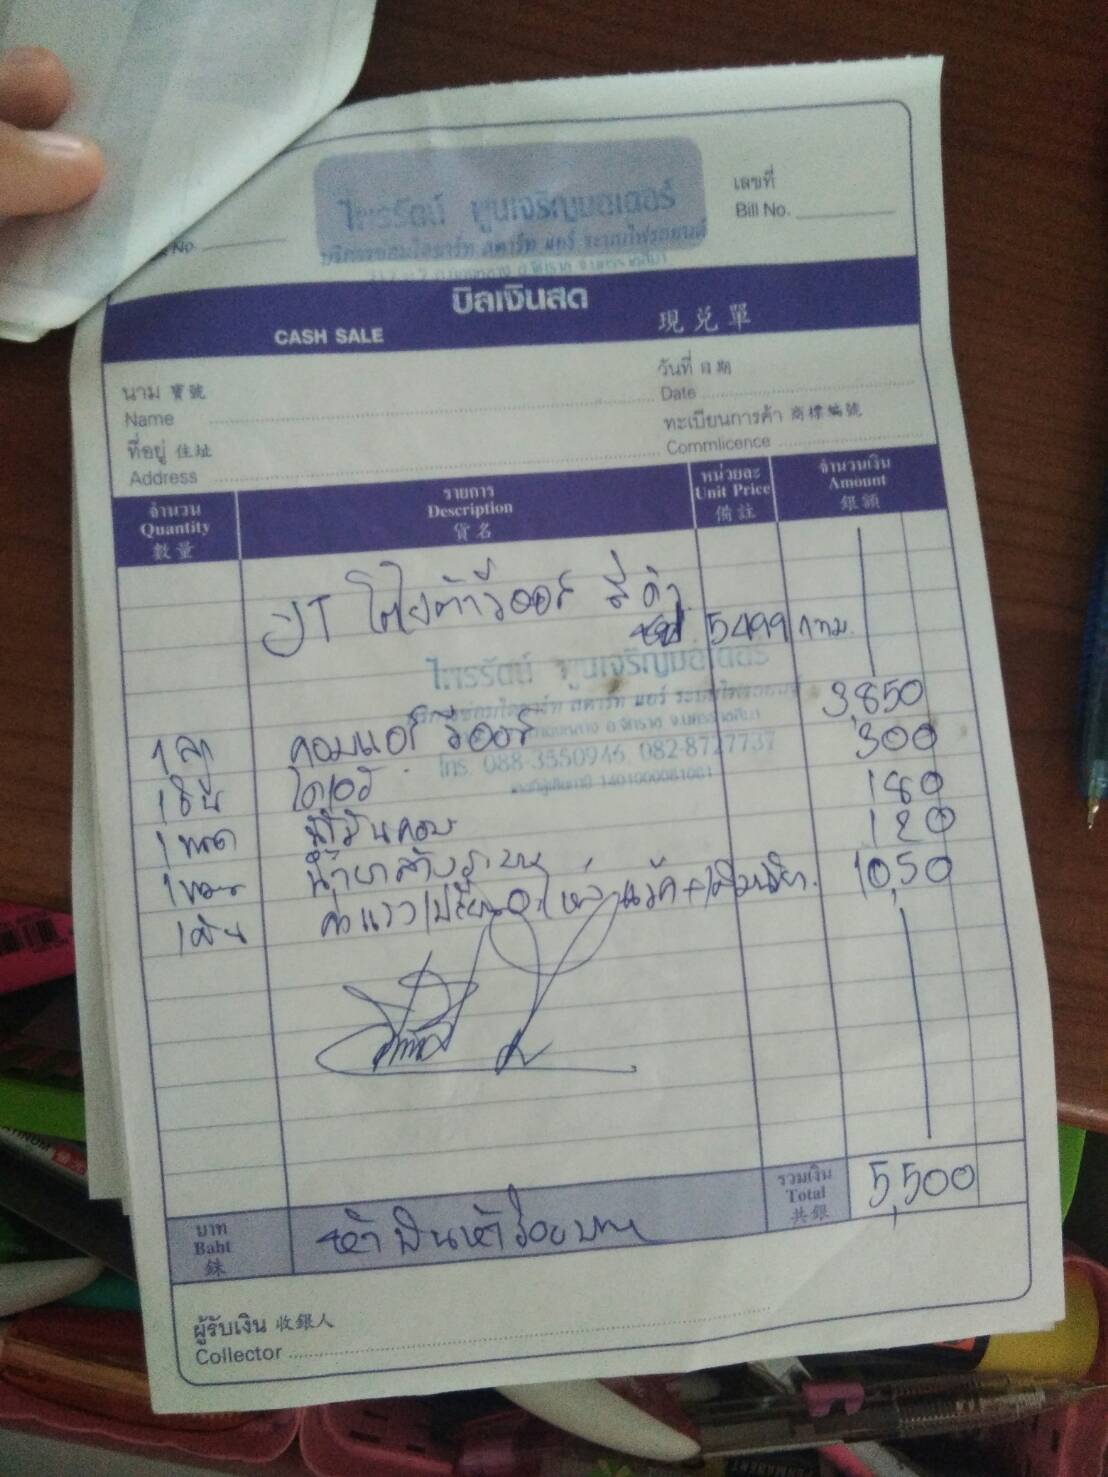 ไพรรัตน์ พูนเจริญมอเตอร์
บริการซ่อมไดชาร์ท สตาร์ท แอร์ ระบบไฟรถยนต์
เลขที่
Bill No.
No.
บิลเงินสด
CASH SALE
現兌單
นาม 寶號
Name
วันที่ 日期
Date
ที่อยู่ 住址
Address
ทะเบียนการค้า 商標編號
Commlicence
จำนวน
Quantity
數量
รายการ
Description
貨名
หน่วยละ
Unit Price
備註
จำนวนเงิน
Amount
銀額
โตโยต้าวีออส สีดำ
5499 กทม.
ไพรรัตน์ พูนเจริญมอเตอร์
บริการซ่อมไดชาร์ท สตาร์ท แอร์ ระบบไฟรถยนต์
อ.จักราช จ.นครราชสีมา
โทร. 088-3550946, 082-8727737
1 ลูก คอมแอร์ วีออส 3,850
1 ชิ้น ไดเออร์ 300
น้ำมันคอม 180
น้ำยาล้างระบบ 120
ค่าแรง 10,50
บาท
Baht
銖
ห้าพันห้าร้อยบาท
รวมเงิน
Total
共銀
5,500
ผู้รับเงิน 收銀人
Collector